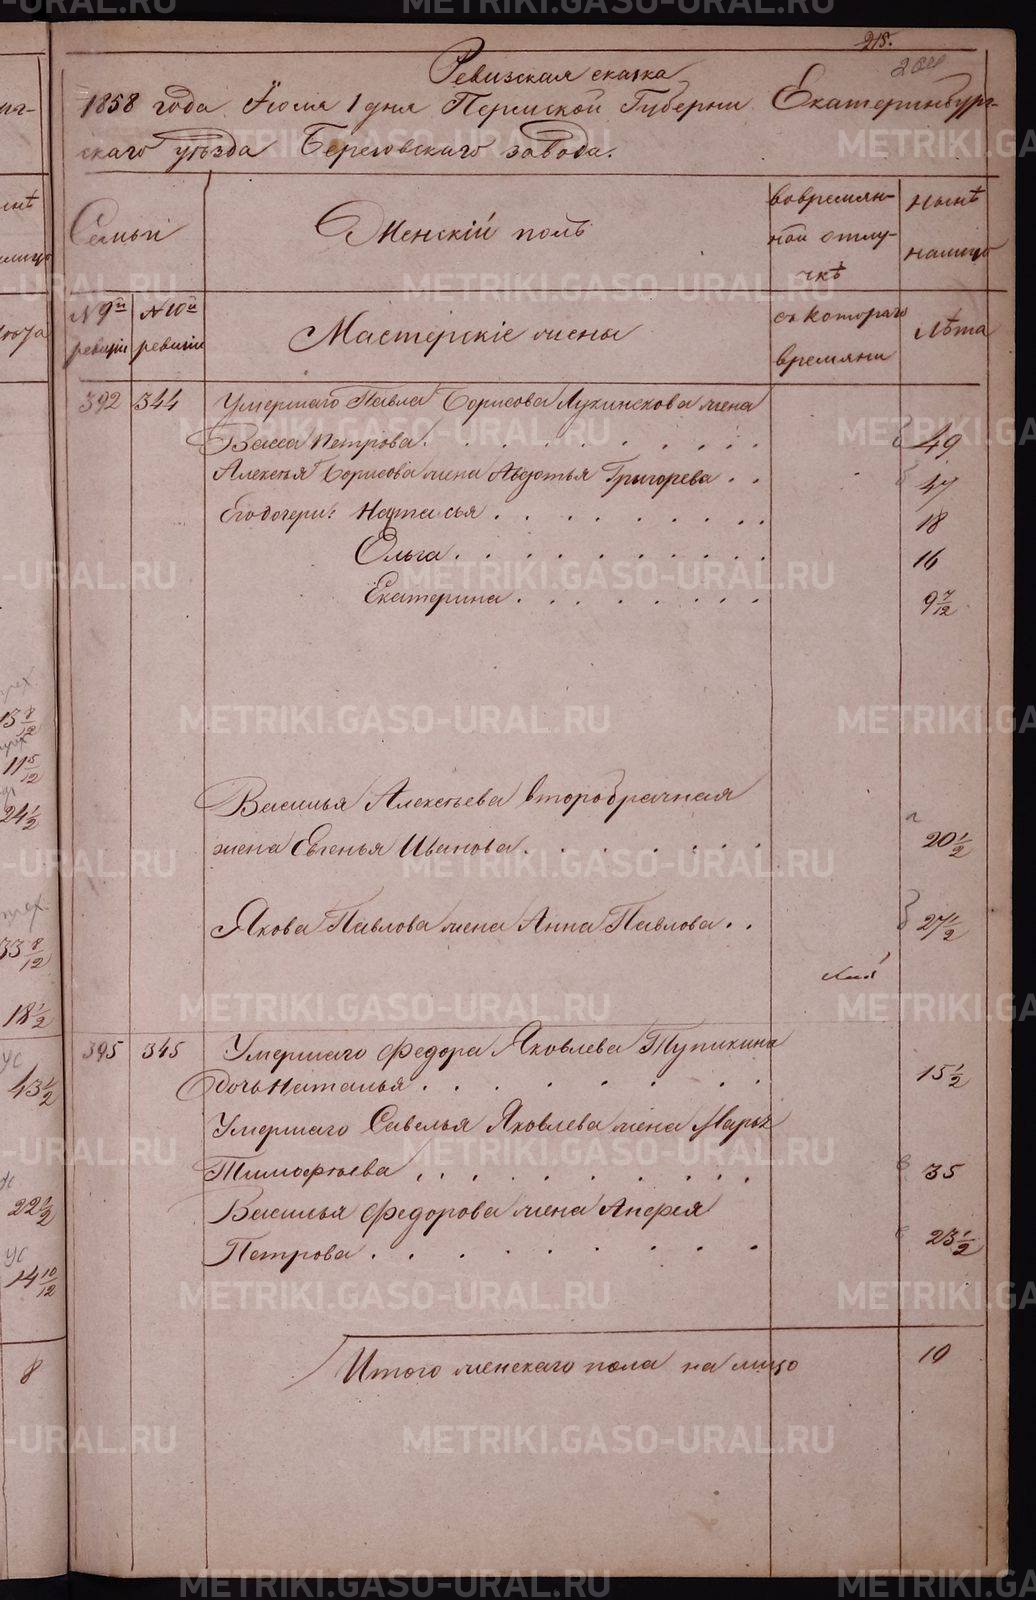 218.
204
Ревизская сказка
1858 года Іюля 1 дня Пермской Губерни Екатеринбург-
скаго уѣзда Березовскаго завода.
Семьи
Женскій полъ
вовремян-
ной отлу-
чкѣ
нынѣ
налицо
№ 9й
ревизіи
№ 10й
ревизіи
Мастерскіе жены
съ котораго
времяни
Лѣта
392 344 Умершаго Павла Борисова Лукинскова жена
Васса Петрова 49
Алексѣя Борисова жена Авдотья Григорева 47
Его дочери: Наталья 18
Ольга 16
Екатерина 9 7/12
Василья Алексѣева второбрачная
жена Евгенья Иванова 20 1/2
Якова Павлова жена Анна Павлова 27 1/2
395 345 Умершаго Федора Яковлева Тупикина
дочь Наталья 15 1/2
Умершаго Савелья Яковлева жена Марья
Тимофѣева 35
Василья Федорова жена
Петрова 23 1/2
Итого женскаго пола на лицо 10
13 8/12
11 5/12
24 1/2
33 8/12
18 1/2
43 1/2
22 1/2
14 10/12
8
METRIKI.GASO-URAL.RU